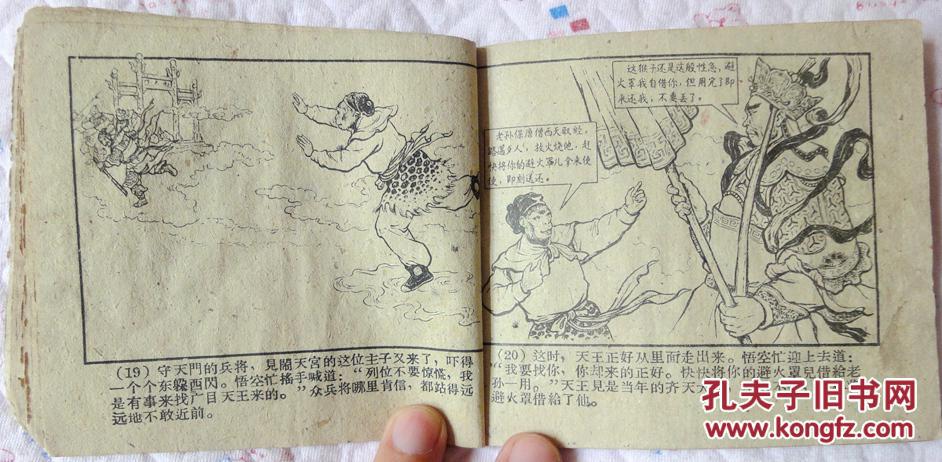 (19) 守天門的兵将，見鬧天宮的这位主子又来了，吓得
一个个东躱西閃。悟空忙搖手喊道：“列位不要惊慌，我
是有事来找广目天王来的。”众兵将哪里肯信，都站得远
远地不敢近前。
老孙保唐僧西天取经，
路遇歹人，放火烧他，赶
快将你的避火罩儿拿来使
使，即刻送还。
这猴子还是这般性急，避
火罩我自借你，但用完了即
来还我，不要丢了。
(20) 这时，天王正好从里面走出来。悟空忙迎上去道：
“我要找你，你却来的正好。快快将你的避火罩兒借給老
孙一用。”天王見是当年的齐天大
避火罩借給了他。
孔夫子旧书网
www.kongfz.com